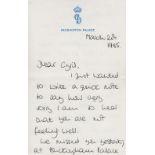 KENSINGTON PALACE
March 28th
1985.
Dear Cyril,
I just wanted
to write a quick note
to say how very
sorry I am to hear
that you are not
feeling well.
We missed you yesterday
at Buckingham Palace